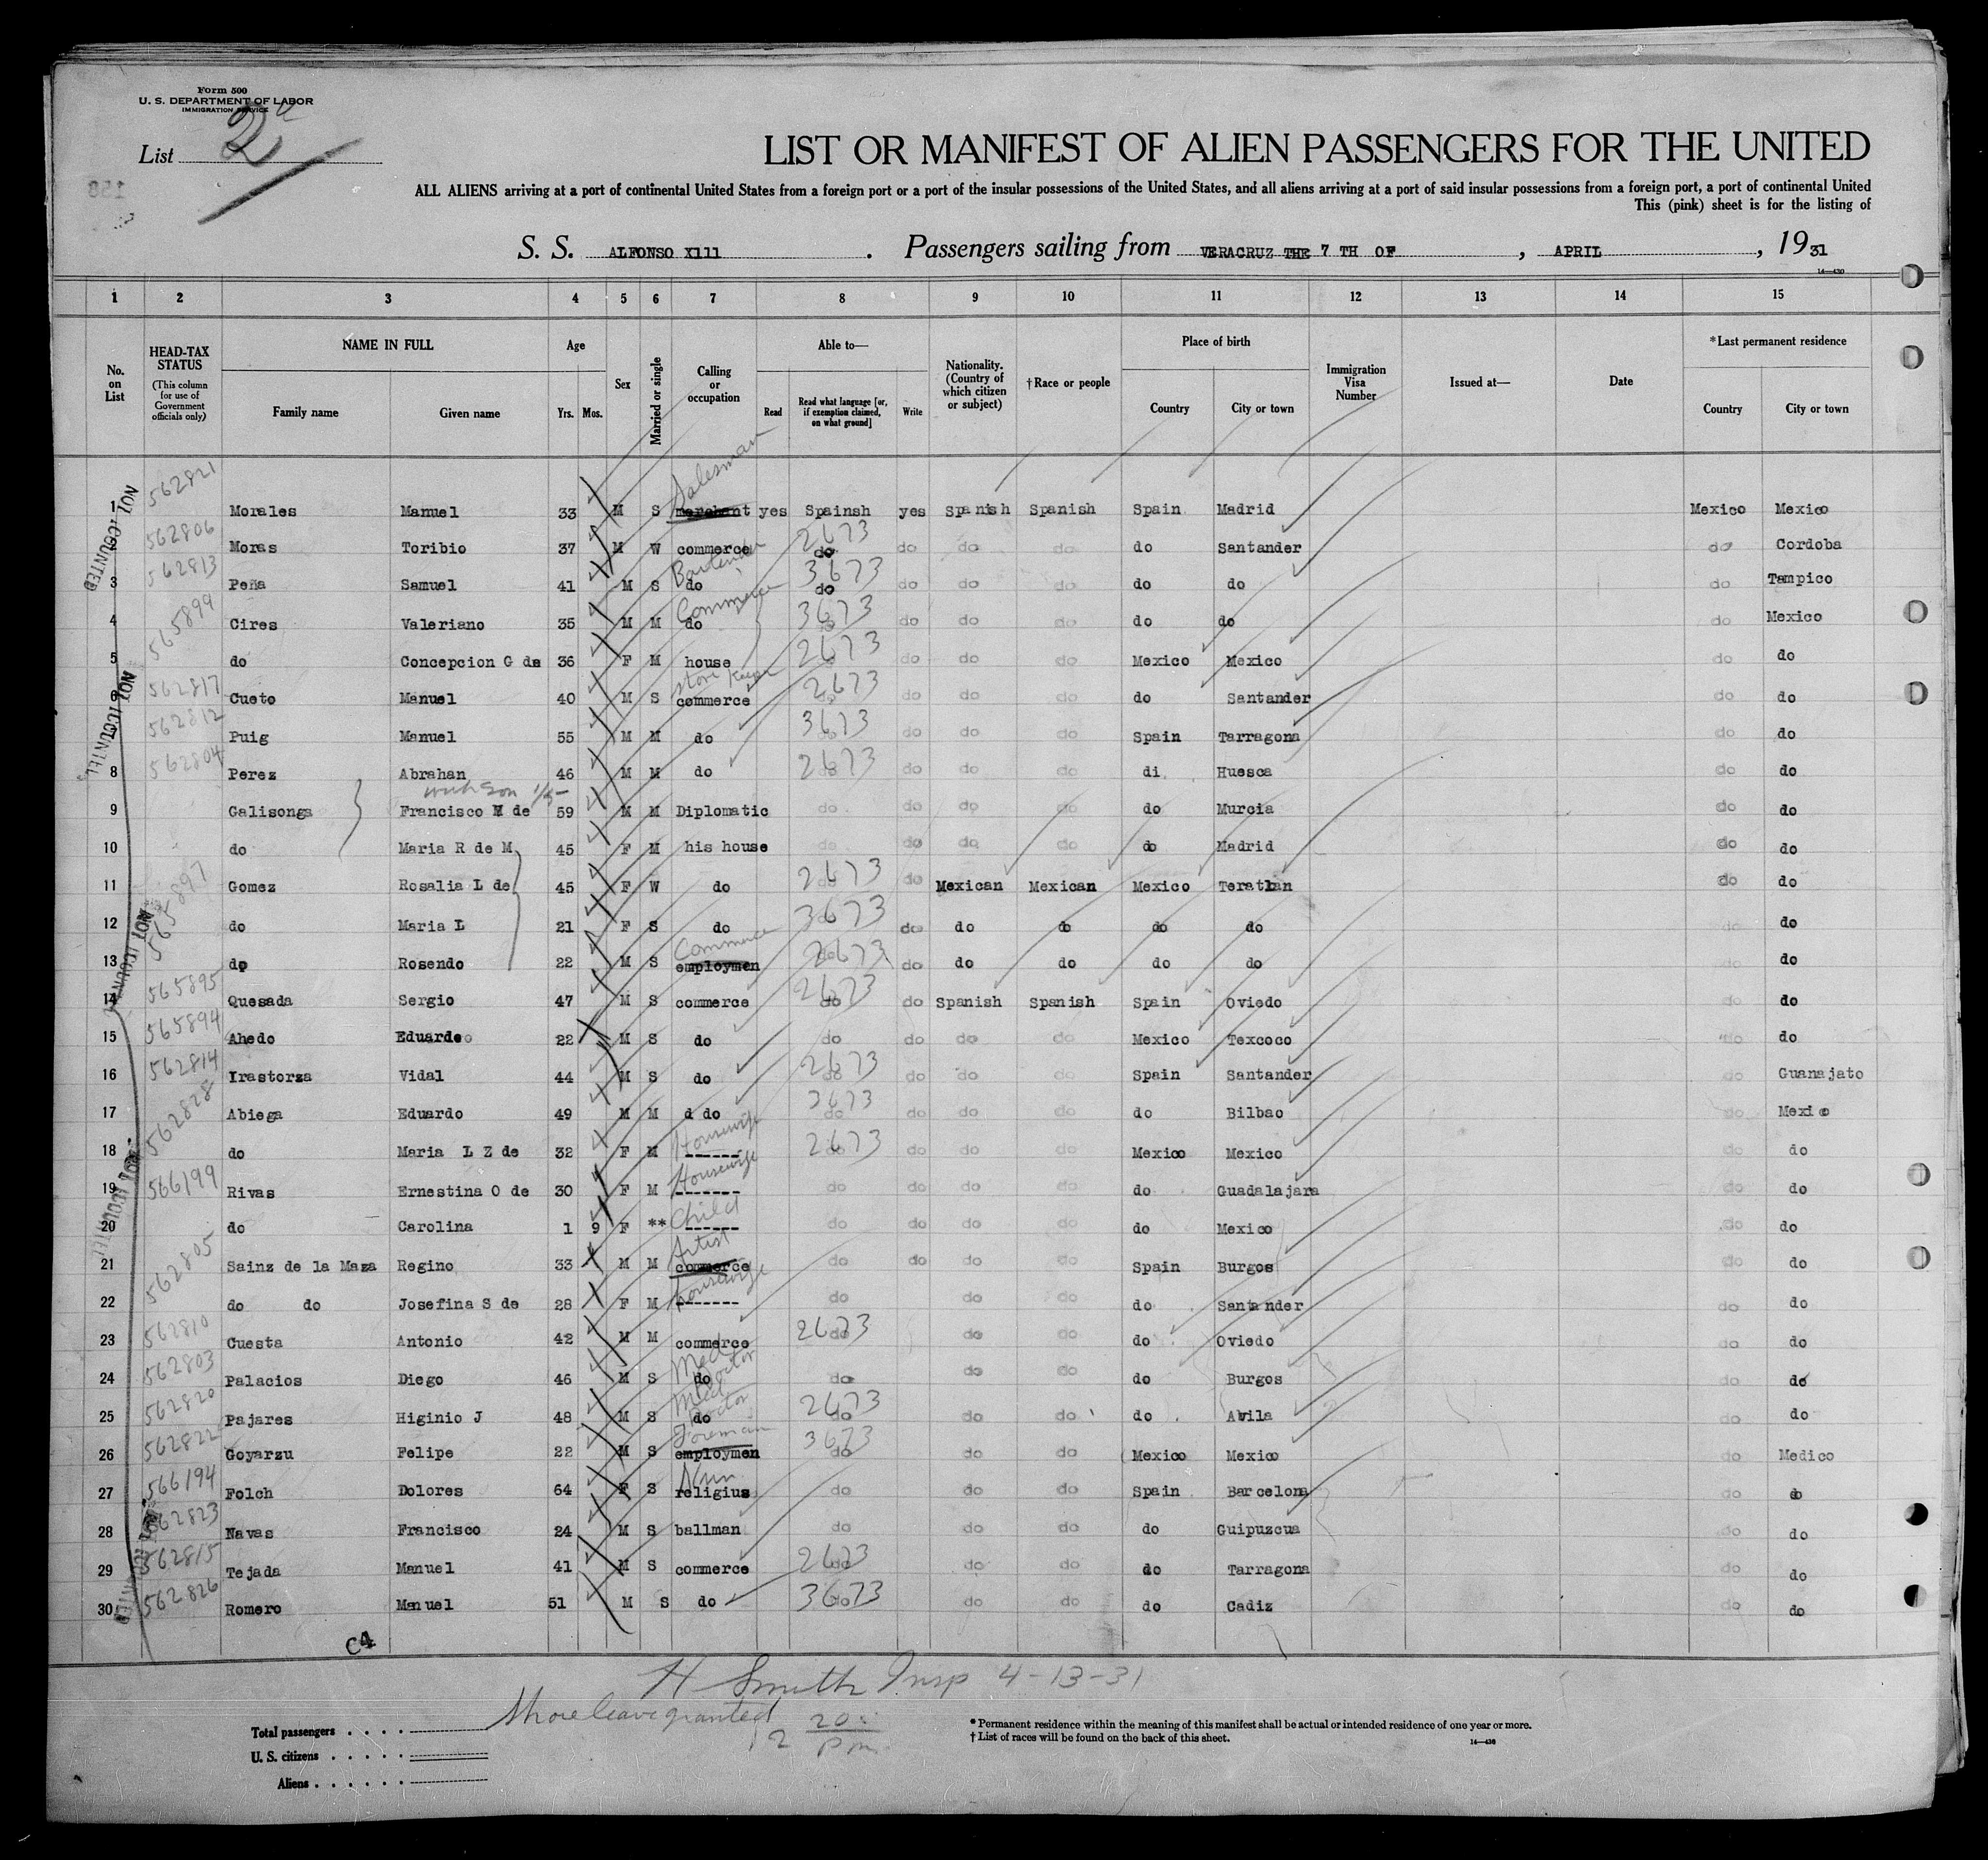 Form 500
U. S. DEPARTMENT OF LABOR
IMMIGRATION SERVICE
List 2
LIST OR MANIFEST OF ALIEN PASSENGERS FOR THE UNITED
ALL ALIENS arriving at a port of continental United States from a foreign port or a port of the insular possessions of the United States, and all aliens arriving at a port of said insular possessions from a foreign port, a port of continental United
This (pink) sheet is for the listing of
S. S. ALFONSO X111 . Passengers sailing from VERACRUZ THE 7 TH OF , APRIL , 1931
14—430
1 2 3 4 5 6 7 8 9 10 11 12 13 14 15
No. on List
HEAD-TAX STATUS (This column for use of Government officials only)
NAME IN FULL Family name Given name
Age Yrs. Mos.
Sex
Married or single
Calling or occupation
Able to— Read Read what language [or, if exemption claimed, on what ground] Write
Nationality. (Country of which citizen or subject)
†Race or people
Place of birth Country City or town
Immigration Visa Number
Issued at—
Date
*Last permanent residence Country City or town
1 562821 Morales Manuel 33 M S merchant Salesman yes Spainsh yes Spanish Spanish Spain Madrid Mexico Mexico
562806 Moras Toribio 37 M W commerce do 2673 do do do do Santander do Cordoba
3 562813 Peña Samuel 41 M S do Bartender do 3673 do do do do do do Tampico
4 565899 Cires Valeriano 35 M M do Commerce do 3673 do do do do do do Mexico
5 do Concepcion G de 36 F M house 2673 do do do Mexico Mexico do do
6 562817 Cueto Manuel 40 M S commerce store keeper do 2673 do do do do Santander do do
7 562812 Puig Manuel 55 M M do 3673 do do do Spain Tarragona do do
8 562804 Perez Abrahan 46 M M do do 2673 do do do di Huesca do do
with son
9 Galisonga Francisco M de 59 M M Diplomatic do do do do do Murcia do do
10 do Maria R de M 45 F M his house do do do do do Madrid do do
11 565897 Gomez Rosalia L de 45 F W do do 2673 do Mexican Mexican Mexico Teratlan do do
12 do Maria L 21 F S do do 3673 do do do do do do do
13 do Rosendo 22 M S employmen Commerce do 2673 do do do do do do do
14 565895 Quesada Sergio 47 M S commerce do 2673 do Spanish Spanish Spain Oviedo do do
15 565894 Ahedo Eduardo 22 M S do do do do do Mexico Texcoco do do
16 562814 Irastorza Vidal 44 M S do do 2673 do do do Spain Santander do Guanajato
17 562828 Abiega Eduardo 49 M M d do do 3673 do do do do Bilbao do Mexico
18 do Maria L Z de 32 F M ------ Housewife do 2673 do do do Mexico Mexico do do
19 566199 Rivas Ernestina O de 30 F M ------- Housewife do do do do do Guadalajara do do
20 do Carolina 1 9 F ** ------ Child do do do do do Mexico do do
21 562805 Sainz de la Maza Regino 33 M M commerce Artist do do do do Spain Burgos do do
22 do do Josefina S de 28 F M ------- housewife do do do do Santander do do
23 562810 Cuesta Antonio 42 M M commerce do 2673 do do do Oviedo do do
24 562803 Palacios Diego 46 M S do Med Doctor do do do do Burgos do do
25 562820 Pajares Higinio J 48 M S do Med Doctor do 2673 do do do Avila do do
26 562822 Goyarzu Felipe 22 M S employmen Foreman do 3673 do do Mexico Mexico do Medico
27 566194 Folch Dolores 64 F S religius Nun do do do Spain Barcelona do do
28 562823 Navas Francisco 24 M S ballman do do do do Guipuzcua do do
29 562815 Tejada Manuel 41 M S commerce do 2673 do do do Tarragona do do
30 562826 Romero Manuel 51 M S do do 3673 do do do Cadiz do do
NOT COUNTED
C4
H Smith Insp 4-13-31
Shore leave granted
2 20 pm
Total passengers . . . .
U. S. citizens . . . . .
Aliens . . . . . .
*Permanent residence within the meaning of this manifest shall be actual or intended residence of one year or more.
†List of races will be found on the back of this sheet.
14—430